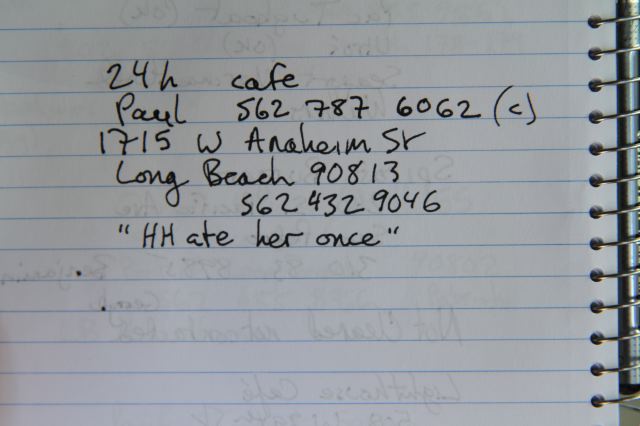 24h cafe
Paul 562 787 6062 (c)
1715 W Anaheim St
Long Beach 90813
562 432 9046
"HH ate her once"